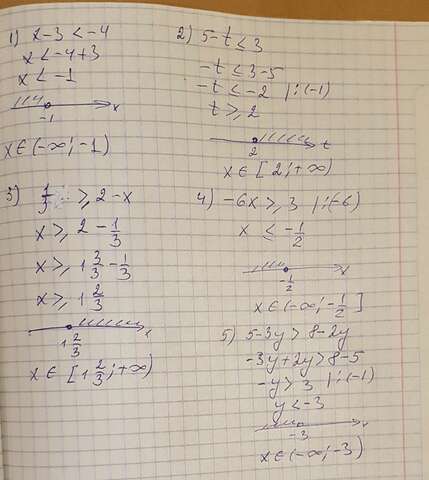 1) x-3 < -4
x < -4+3
x < -1
-1
x
x ∈ (-∞; -1)
2) 5-t ≤ 3
-t ≤ 3-5
-t ≤ -2 |:(-1)
t ≥ 2
2
t
x ∈ [2; +∞)
3) 1/3 ≥ 2-x
x ≥ 2 - 1/3
x ≥ 1 3/3 - 1/3
x ≥ 1 2/3
1 2/3
x ∈ [1 2/3; +∞)
4) -6x ≥ 3 |:(-6)
x ≤ -1/2
-1/2
x
x ∈ (-∞; -1/2]
5) 5-3y > 8-2y
-3y+2y > 8-5
-y > 3 |:(-1)
y < -3
-3
x ∈ (-∞; -3)